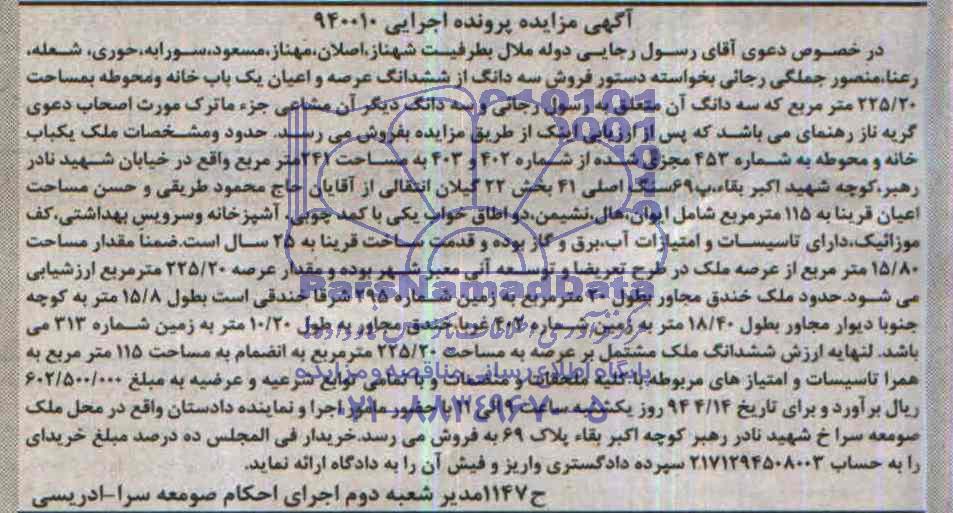 آگهی مزایده پرونده اجرایی ۹۴۰۰۱۰
در خصوص دعوی آقای رسول رجایی دوله ملال بطرفیت شهناز،اصلان،مهناز،مسعود،سورابه،حوری، شعله،
رعنا،منصور جملگی رجائی بخواسته دستور فروش سه دانگ از ششدانگ عرصه و اعیان یک باب خانه ومحوطه بمساحت
۲۲۵/۲۰ متر مربع که سه دانگ آن متعلق به رسول رجائی و سه دانگ دیگر آن مشاعی جزء ماترک مورث اصحاب دعوی
گریه ناز رهنمای می باشد که پس از ارزیابی اینک از طریق مزایده بفروش می رسد. حدود ومشخصات ملک یکباب
خانه و محوطه به شماره ۴۵۳ مجزی شده از شماره ۴۰۲ و ۴۰۳ به مساحت ۲۴۱متر مربع واقع در خیابان شهید نادر
رهبر،کوچه شهید اکبر بقاء،پ۶۹سنگ اصلی ۴۱ بخش ۲۲ گیلان انتقالی از آقایان حاج محمود طریقی و حسن مساحت
اعیان قرینا به ۱۱۵ مترمربع شامل ایوان،هال،نشیمن،دو اطاق خواب یکی با کمد چوبی، آشپزخانه وسرویس بهداشتی،کف
موزائیک،دارای تاسیسات و امتیازات آب،برق و گاز بوده و قدمت ساخت قرینا به ۲۵ سال است.ضمنا مقدار مساحت
۱۵/۸۰ متر مربع از عرصه ملک در طرح تعریضا و توسعه آتی معبر شهر بوده و مقدار عرصه ۲۲۵/۲۰ مترمربع ارزشیابی
می شود.حدود ملک خندق مجاور بطول ۲۰ مترمربع به زمین شماره ۲۹۵ شرفا خندقی است بطول ۱۵/۸ متر به کوچه
جنوبا دیوار مجاور بطول ۱۸/۴۰ متر به زمین شماره ۴۰۲ غربا خندق مجاور به طول ۱۰/۲۰ متر به زمین شماره ۳۱۳ می
باشد. لنهایه ارزش ششدانگ ملک مشتمل بر عرصه به مساحت ۲۲۵/۲۰ مترمربع به انضمام به مساحت ۱۱۵ متر مربع به
همرا تاسیسات و امتیاز های مربوطه با کلیه ملحقات و منضمات و با تمامی توابع شرعیه و عرضیه به مبلغ ۶۰۲/۵۰۰/۰۰۰
ریال بر آورد و برای تاریخ ۹۴ ۴/۱۴ روز یکشنبه ساعت ۹الی ۱۲ با حضور مامور اجرا و نماینده دادستان واقع در محل ملک
صومعه سرا خ شهید نادر رهبر کوچه اکبر بقاء پلاک ۶۹ به فروش می رسد.خریدار فی المجلس ده درصد مبلغ خریدای
را به حساب ۲۱۷۱۲۹۴۵۰۸۰۰۳ سپرده دادگستری واریز و فیش آن را به دادگاه ارائه نماید.
ح۱۱۴۷مدیر شعبه دوم اجرای احکام صومعه سرا-ادریسی
ParsNamadData
پایگاه اطلاع رسانی مناقصه و مزایده
۰۲۱-۸۸۳۴۹۶۷۰-۵